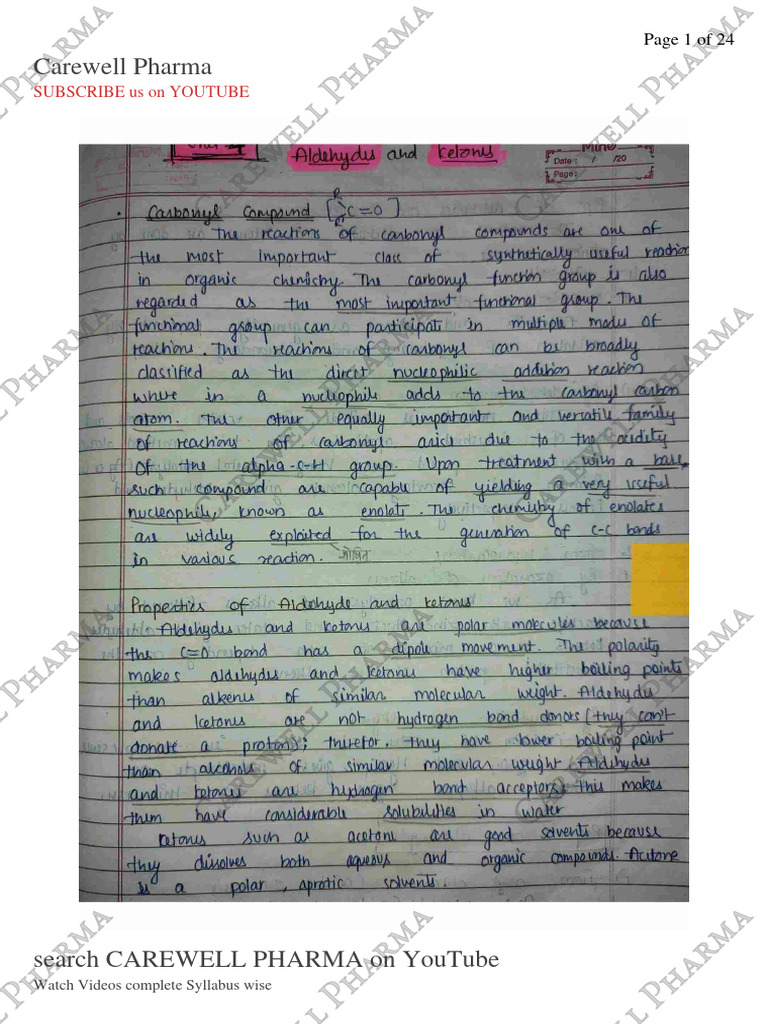 Page 1 of 24
Carewell Pharma
SUBSCRIBE us on YOUTUBE
Aldehydes and Ketones
Date : / /20
Page:
Carbonyl Compound [R R' C=O]
The reactions of carbonyl compounds are one of
the most important class of synthetically useful reaction
in organic chemistry. The carbonyl function group is also
regarded as the most important functional group. The
functional group can participate in multiple modes of
reactions. The reactions of carbonyl can be broadly
classified as the direct nucleophilic addition reaction
where in a nucleophile adds to the carbonyl carbon
atom. The other equally important and versatile family
of reactions of carbonyl arises due to the acidity
of the alpha-C-H group. Upon treatment with a base,
such compound are capable of yielding a very useful
nucleophile, known as enolate. The chemistry of enolates
are widely exploited for the generation of C-C bonds
in various reaction. शोषित
Properties of Aldehyde and ketones
Aldehydes and ketones are polar molecules because
the C=O bond has a dipole movement. The polarity
makes aldehydes and ketones have higher boiling points
than alkenes of similar molecular weight. Aldehydes
and ketones are not hydrogen bond donors (they can't
donate a proton); therefor. they have lower boiling point
than alcohols of similar molecular weight. Aldehydes
and ketones are hydrogen bond acceptors; this makes
them have considerable solubilities in water
Ketones such as acetone are good solvents because
they dissolves both aqueous and organic compounds. Acetone
is a polar, aprotic solvents.
search CAREWELL PHARMA on YouTube
Watch Videos complete Syllabus wise
CAREWELL PHARMA